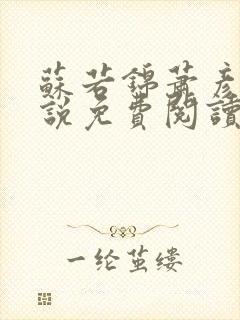 蘇若錦蕭彥
說免費閱讀
一纶茧缕